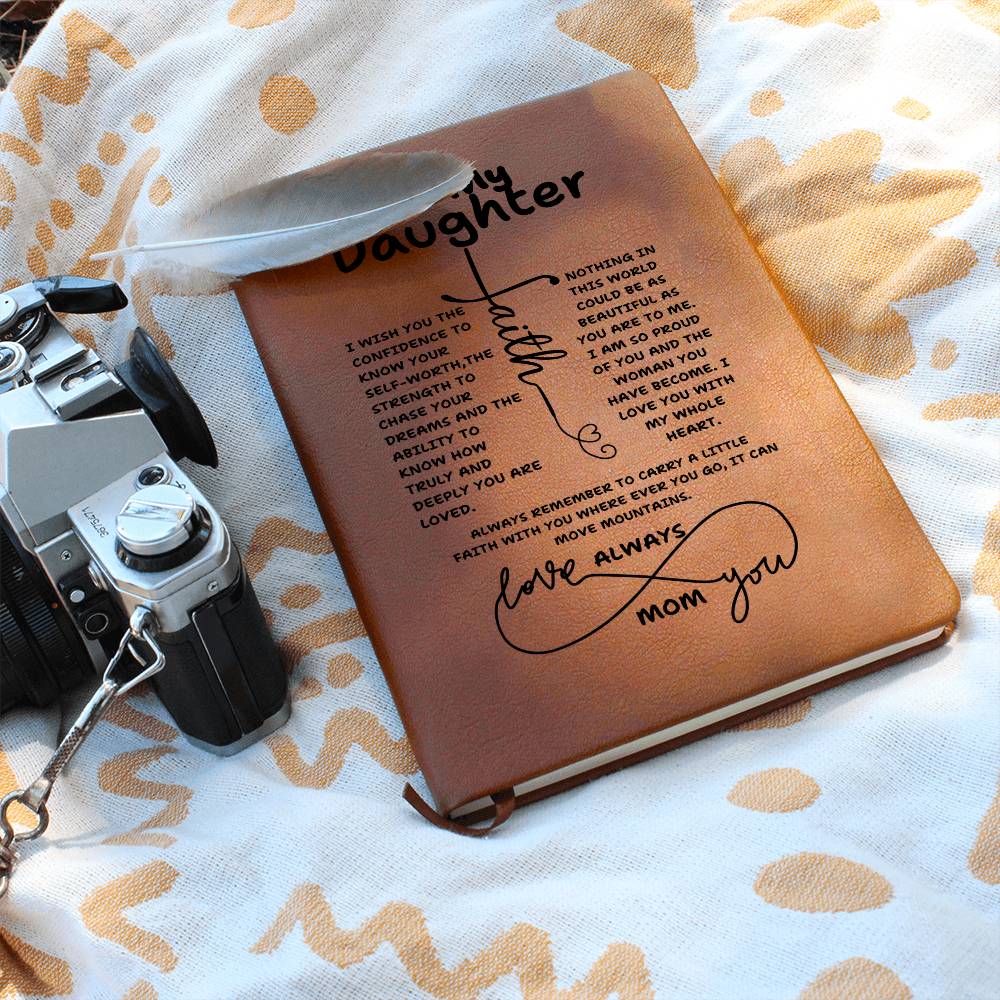 My
Daughter
faith
I WISH YOU THE
CONFIDENCE TO
KNOW YOUR
SELF-WORTH,THE
STRENGTH TO
CHASE YOUR
DREAMS AND THE
ABILITY TO
KNOW HOW
TRULY AND
DEEPLY YOU ARE
LOVED.
NOTHING IN
THIS WORLD
COULD BE AS
BEAUTIFUL AS
YOU ARE TO ME.
I AM SO PROUD
OF YOU AND THE
WOMAN YOU
HAVE BECOME. I
LOVE YOU WITH
MY WHOLE
HEART.
ALWAYS REMEMBER TO CARRY A LITTLE
FAITH WITH YOU WHERE EVER YOU GO, IT CAN
MOVE MOUNTAINS.
love ALWAYS
mom you